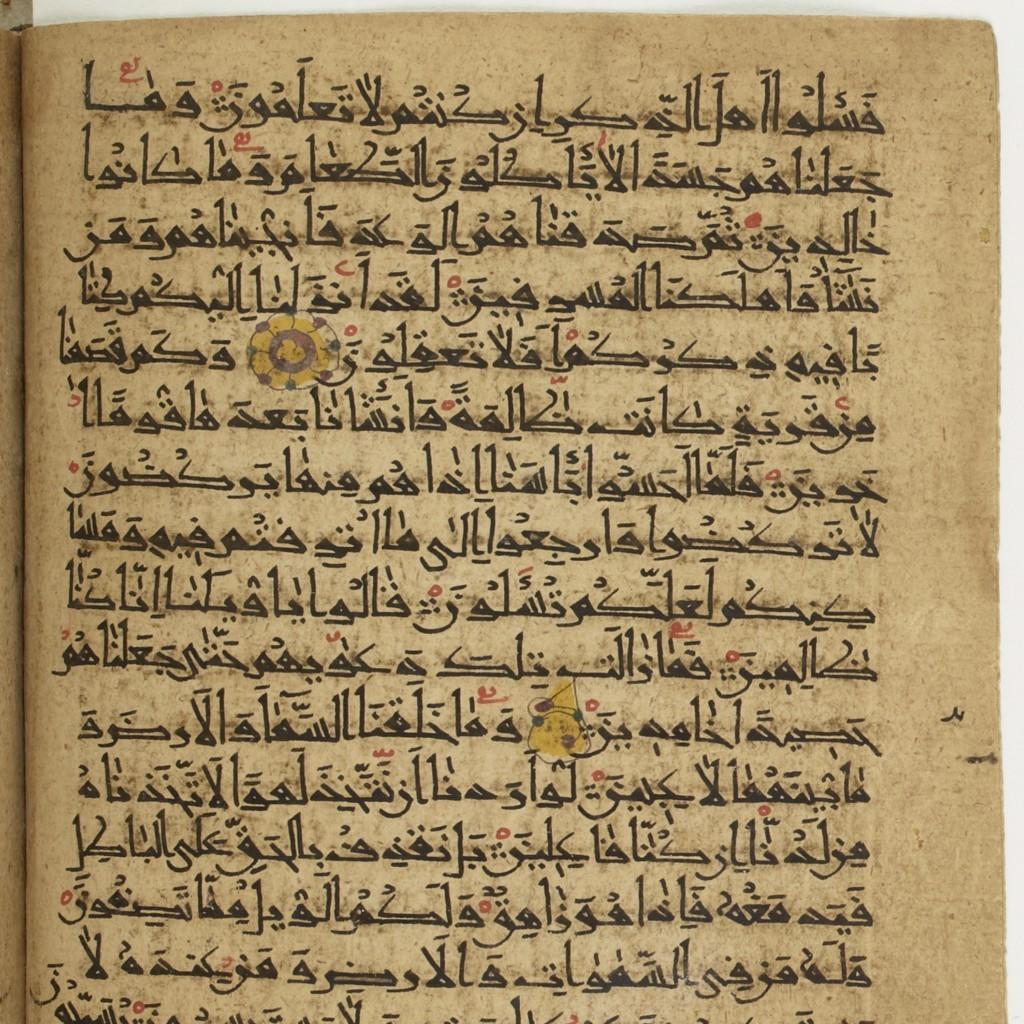 فَسْـَٔلُوٓا۟ أَهْلَ ٱلذِّكْرِ إِن كُنتُمْ لَا تَعْلَمُونَ وَمَا
جَعَلْنَاهُمْ جَسَدًا لَّا يَأْكُلُونَ ٱلطَّعَامَ وَمَا كَانُوا
خَالِدِينَ ثُمَّ صَدَقْنَاهُمُ ٱلْوَعْدَ فَأَنجَيْنَاهُمْ وَمَن
نَّشَآءُ وَأَهْلَكْنَا ٱلْمُسْرِفِينَ لَقَدْ أَنزَلْنَآ إِلَيْكُمْ كِتَا
بًا فِيهِ ذِكْرُكُمْ أَفَلَا تَعْقِلُونَ وَكَمْ قَصَمْنَا
مِن قَرْيَةٍ كَانَتْ ظَالِمَةً وَأَنشَأْنَا بَعْدَهَا قَوْمًا ا
خَرِينَ فَلَمَّآ أَحَسُّوا بَأْسَنَآ إِذَا هُم مِّنْهَا يَرْكُضُونَ
لَا تَرْكُضُوا وَٱرْجِعُوٓا إِلَىٰ مَآ أُتْرِفْتُمْ فِيهِ وَمَسَا
كِنِكُمْ لَعَلَّكُمْ تُسْـَٔلُونَ قَالُوا يَا وَيْلَنَآ إِنَّا كُنَّا
ظَالِمِينَ فَمَا زَالَت تِّلْكَ دَعْوَاهُمْ حَتَّىٰ جَعَلْنَاهُمْ
حَصِيدًا خَامِدِينَ وَمَا خَلَقْنَا ٱلسَّمَآءَ وَٱلْأَرْضَ وَ
مَا بَيْنَهُمَا لَاعِبِينَ لَوْ أَرَدْنَآ أَن نَّتَّخِذَ لَهْوًا لَّٱتَّخَذْنَاهُ
مِن لَّدُنَّآ إِن كُنَّا فَاعِلِينَ بَلْ نَقْذِفُ بِٱلْحَقِّ عَلَى ٱلْبَاطِلِ
فَيَدْمَغُهُ فَإِذَا هُوَ زَاهِقٌ وَلَكُمُ ٱلْوَيْلُ مِمَّا تَصِفُونَ
وَلَهُ مَن فِى ٱلسَّمَاوَاتِ وَٱلْأَرْضِ وَمَنْ عِندَهُ لَا